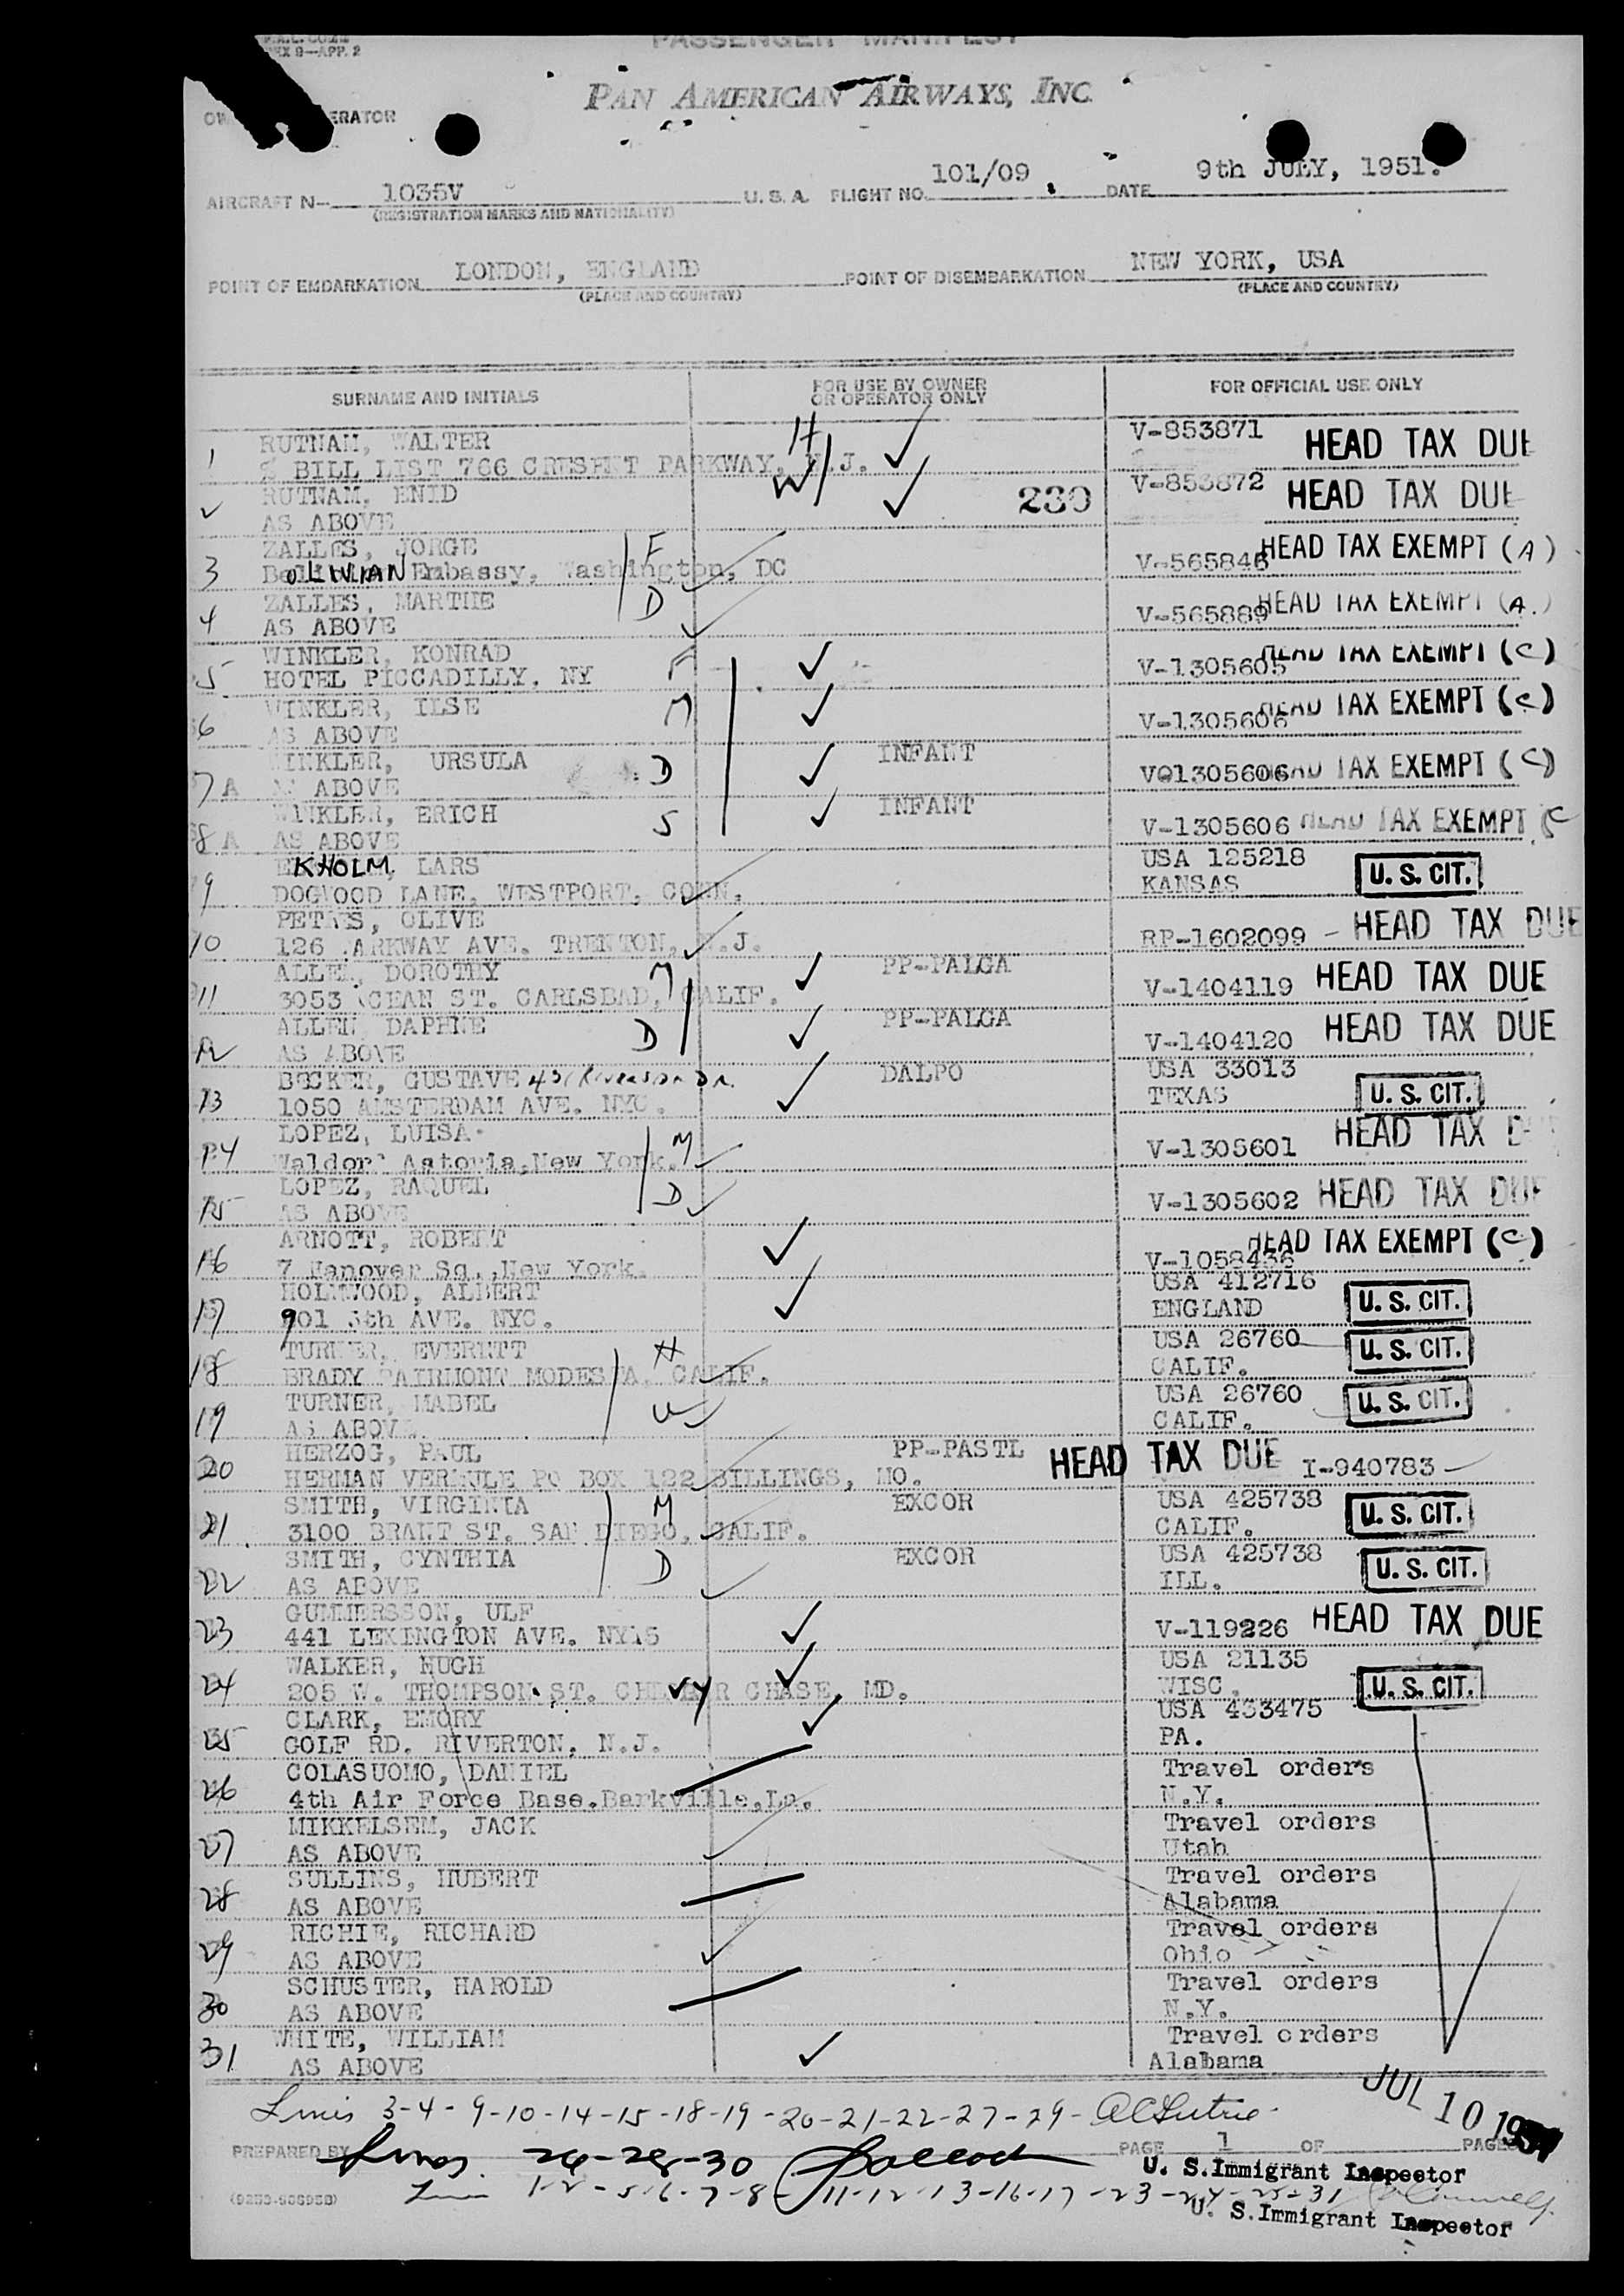 EX 9—APP. 2
PASSENGER MANIFEST
PAN AMERICAN AIRWAYS, INC.
ERATOR
AIRCRAFT N- 1035V U. S. A. FLIGHT NO. 101/09 DATE 9th JULY, 1951.
(REGISTRATION MARKS AND NATIONALITY)
POINT OF EMBARKATION LONDON, ENGLAND POINT OF DISEMBARKATION NEW YORK, USA
(PLACE AND COUNTRY) (PLACE AND COUNTRY)
SURNAME AND INITIALS FOR USE BY OWNER OR OPERATOR ONLY FOR OFFICIAL USE ONLY
RUTNAM, WALTER H V-853871 HEAD TAX DUE
1 % BILL LIST 766 CRESENT PARKWAY, N.J. W
RUTNAM, ENID 230 V-853872 HEAD TAX DUE
AS ABOVE
ZALLES, JORGE F HEAD TAX EXEMPT (A)
3 BOLIVIAN Embassy, Washington, DC V-565846
ZALLES, MARTHE D HEAD TAX EXEMPT (A.)
4 AS ABOVE V-565889
WINKLER, KONRAD F HEAD TAX EXEMPT (C)
5 HOTEL PICCADILLY, NY V-1305605
WINKLER, ILSE M HEAD TAX EXEMPT (C)
6 AS ABOVE V-1305606
WINKLER, URSULA D INFANT HEAD TAX EXEMPT (C)
7A AS ABOVE V01305606
WINKLER, ERICH S INFANT
8A AS ABOVE V-1305606 HEAD TAX EXEMPT C
EKHOLM, LARS USA 125218
9 DOGWOOD LANE, WESTPORT, CONN. KANSAS U. S. CIT.
PETERS, OLIVE
10 126 PARKWAY AVE. TRENTON, N.J. RP-1602099 - HEAD TAX DUE
ALLEN, DOROTHY M PP-PALGA
11 3053 OCEAN ST. CARLSBAD, CALIF. V-1404119 HEAD TAX DUE
ALLEN, DAPHNE D PP-PALGA
12 AS ABOVE V-1404120 HEAD TAX DUE
BECKER, GUSTAVE DALPO USA 33013
13 1050 AMSTERDAM AVE. NYC. TEXAS U. S. CIT.
LOPEZ, LUISA HEAD TAX
14 Waldorf Astoria, New York. M V-1305601
LOPEZ, RAQUEL D
15 AS ABOVE V-1305602 HEAD TAX DUE
ARNOTT, ROBERT HEAD TAX EXEMPT (C)
16 7 Hanover Sq., New York. V-1058436
HOLWOOD, ALBERT USA 412716
17 901 5th AVE. NYC. ENGLAND U. S. CIT.
TURNER, EVERETT H USA 26760
18 BRADY FAIRMONT MODESTA, CALIF. CALIF. U. S. CIT.
TURNER, MABEL W USA 26760
19 AS ABOVE. CALIF. U. S. CIT.
HERZOG, PAUL PP-PASTL HEAD TAX DUE
20 HERMAN VERMULE PO BOX 122 BILLINGS, MO. I-940783
SMITH, VIRGINIA M EXCOR USA 425738
21 3100 BRANT ST. SAN DIEGO, CALIF. CALIF. U. S. CIT.
SMITH, CYNTHIA D EXCOR USA 425738
22 AS ABOVE ILL. U. S. CIT.
GUMMERSSON, ULF
23 441 LEXINGTON AVE. NY15 V-119226 HEAD TAX DUE
WALKER, HUGH USA 21135
24 205 W. THOMPSON ST. CHEVY CHASE, MD. WISC. U. S. CIT.
CLARK, EMORY USA 433475
25 GOLF RD. RIVERTON, N.J. PA.
COLASUOMO, DANIEL Travel orders
26 4th Air Force Base, Barkville, La. N.Y.
MIKKELSEM, JACK Travel orders
27 AS ABOVE Utah
SULLINS, HUBERT Travel orders
28 AS ABOVE Alabama
RICHIE, RICHARD Travel orders
29 AS ABOVE Ohio
SCHUSTER, HAROLD Travel orders
30 AS ABOVE N.Y.
WHITE, WILLIAM Travel orders
31 AS ABOVE Alabama
JUL 10 19
Lines 3-4-9-10-14-15-18-19-20-21-22-27-29-
PREPARED BY Lines 26-28-30 PAGE 1 OF PAGES
U. S. Immigrant Inspector
1-2-5-6-7-8- 11-12-13-16-17-23-24-25-31
U. S. Immigrant Inspector